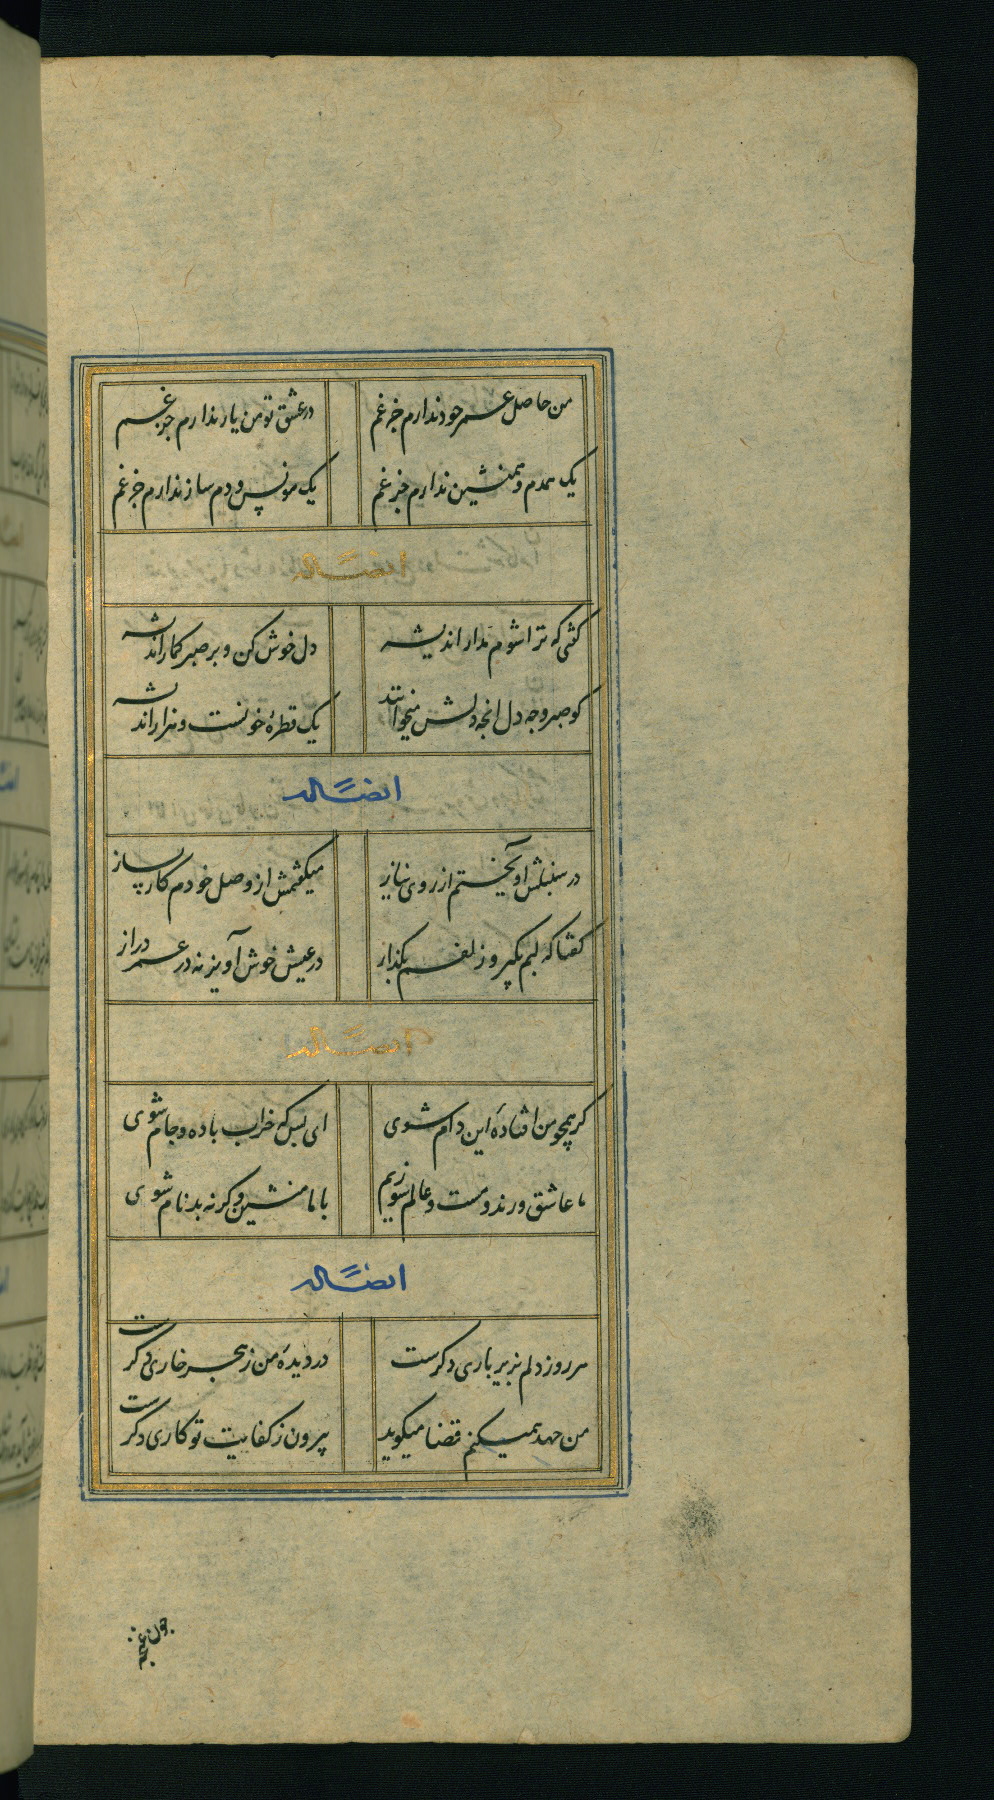 من حاصل عمر خود ندارم جز غم
در عشق تو من یار ندارم جز غم
یک همدم و همنشین ندارم جز غم
یک مونس و دم ساز ندارم جز غم
ایضاً له
گفتی که ترا شوم مدار اندیشه
دل خوش کن و بر صبر گمار اندیشه
کو صبر و چه دل انچه دلش میخوانند
یک قطرهٔ خونست و هزار اندیشه
ایضاً له
در سنبلش آویختم از روی نیاز
میگفتمش از وصل خودم کار بساز
گفتا که لبم بگیر و زلفم بگذار
در عیش خوش آویز نه در عمر دراز
ایضاً له
گر همچو من افتادهٔ این دام شوی
ای بس که خراب باده و جام شوی
ما عاشق و رند و مست و عالم سوزیم
با ما منشین و گرنه بدنام شوی
ایضاً له
هر روز دلم بزیر باری دگرست
در دیدهٔ من ز هجر خاری دگرست
من جهد همیکنم قضا میگوید
بیرون ز کفایت تو کاری دگرست
چون غنچه